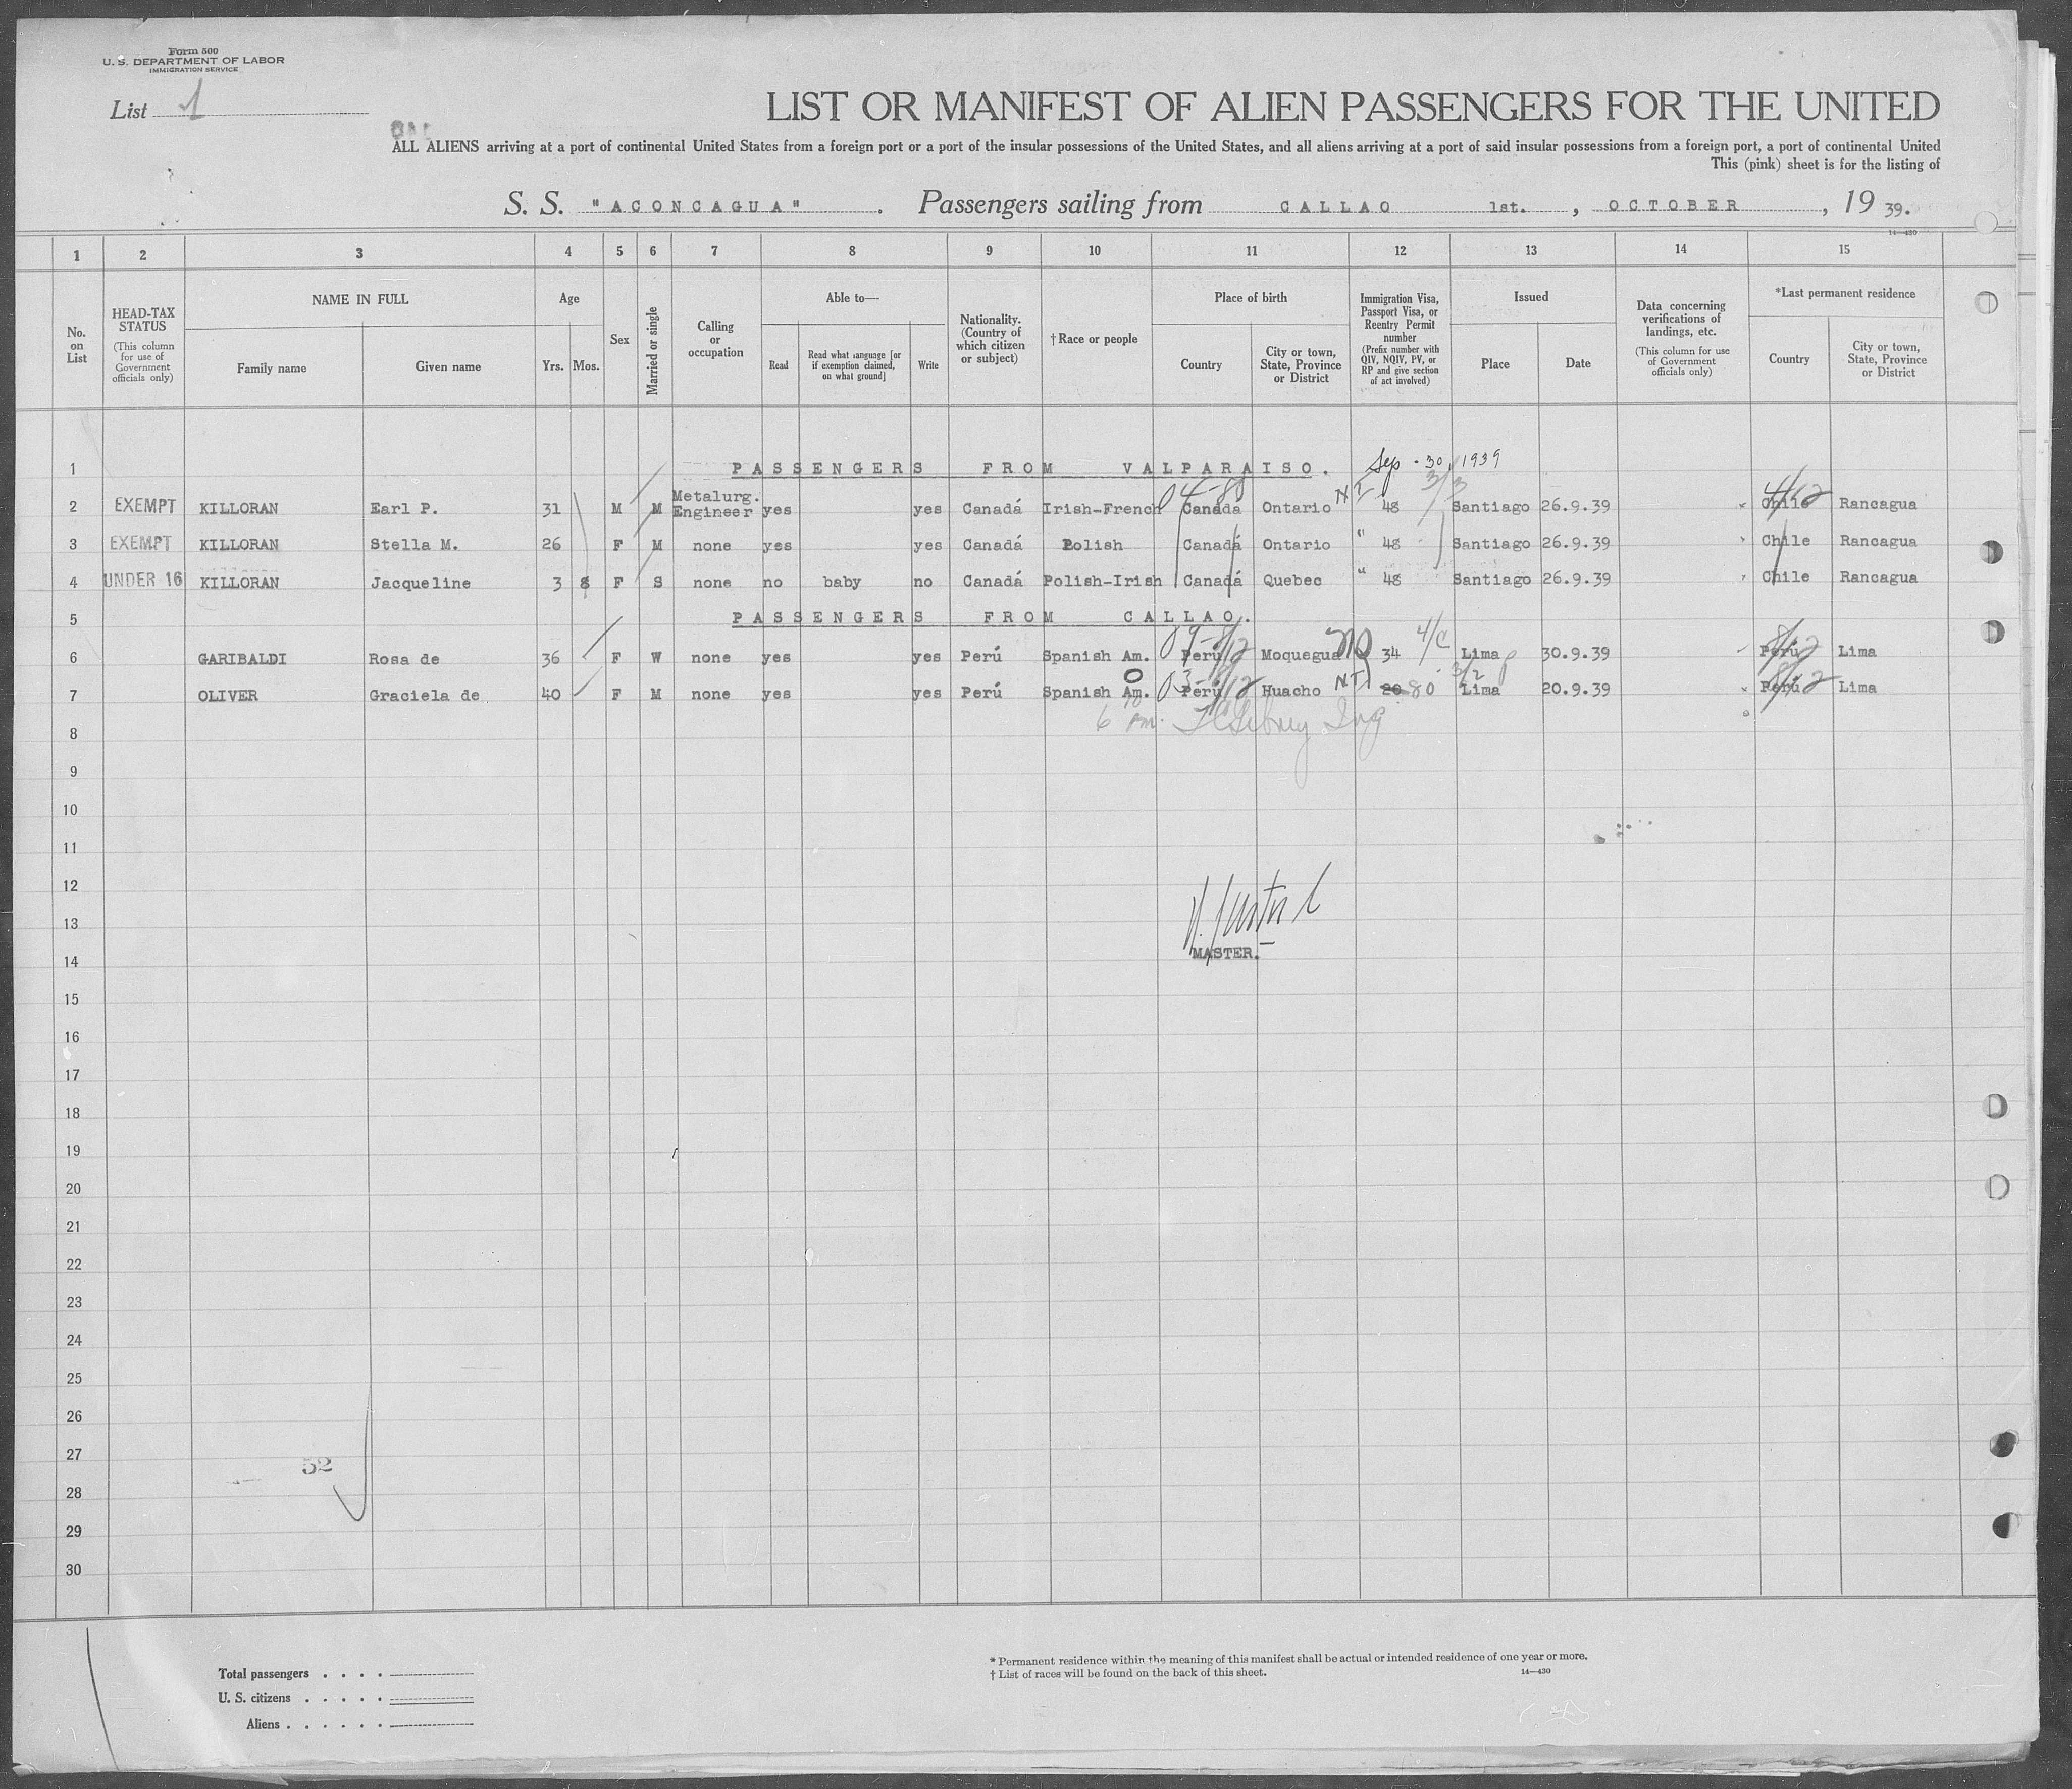 Form 500
U. S. DEPARTMENT OF LABOR
IMMIGRATION SERVICE
List 1
LIST OR MANIFEST OF ALIEN PASSENGERS FOR THE UNITED
ALL ALIENS arriving at a port of continental United States from a foreign port or a port of the insular possessions of the United States, and all aliens arriving at a port of said insular possessions from a foreign port, a port of continental United
This (pink) sheet is for the listing of
S. S. "ACONCAGUA". Passengers sailing from CALLAO 1st., OCTOBER, 19 39.
14—430
1 2 3 4 5 6 7 8 9 10 11 12 13 14 15
No. on List
HEAD-TAX STATUS (This column for use of Government officials only)
NAME IN FULL
Family name Given name
Age
Yrs. Mos.
Sex
Married or single
Calling or occupation
Able to—
Read Read what language [or if exemption claimed, on what ground] Write
Nationality. (Country of which citizen or subject)
†Race or people
Place of birth
Country City or town, State, Province or District
Immigration Visa, Passport Visa, or Reentry Permit number (Prefix number with QIV, NQIV, PV, or RP and give section of act involved)
Issued
Place Date
Data concerning verifications of landings, etc. (This column for use of Government officials only)
*Last permanent residence
Country City or town, State, Province or District
1 PASSENGERS FROM VALPARAISO. Sep. 30, 1939
2 EXEMPT KILLORAN Earl P. 31 M M Metalurg. Engineer yes yes Canadá Irish-French 04-80 Canada Ontario NT 48 3/3 Santiago 26.9.39 Chile 4/12 Rancagua
3 EXEMPT KILLORAN Stella M. 26 F M none yes yes Canadá Polish Canadá Ontario " 48 Santiago 26.9.39 Chile Rancagua
4 UNDER 16 KILLORAN Jacqueline 3 8 F S none no baby no Canadá Polish-Irish Canadá Quebec " 48 Santiago 26.9.39 Chile Rancagua
5 PASSENGERS FROM CALLAO.
6 GARIBALDI Rosa de 36 F W none yes yes Perú Spanish Am. Perú Moquegua 34 Lima 30.9.39 Perú Lima
7 OLIVER Graciela de 40 F M none yes yes Perú Spanish Am. Perú Huacho NT 20 80 3/2 Lima 20.9.39 Perú Lima
8
9
10
11
12
13
MASTER.
14
15
16
17
18
19
20
21
22
23
24
25
26
27
52
28
29
30
Total passengers
U. S. citizens
Aliens
* Permanent residence within the meaning of this manifest shall be actual or intended residence of one year or more.
† List of races will be found on the back of this sheet.
14—430